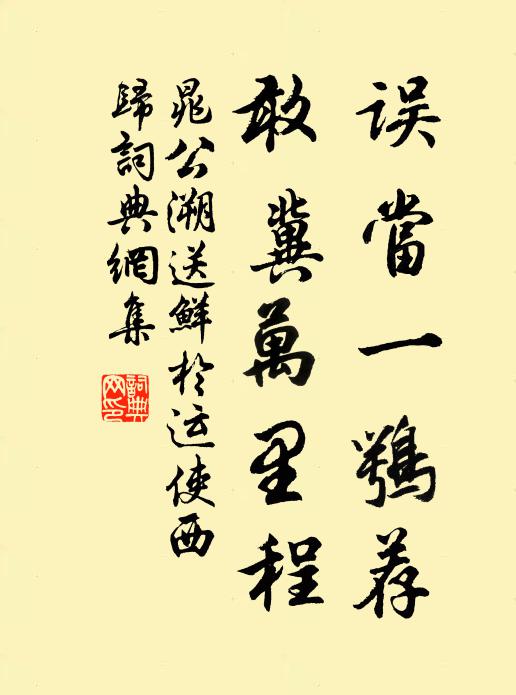 误當一鶚荐
敢冀萬里程
晁公溯送鮮于运使西
歸詞典網集
詞典网印